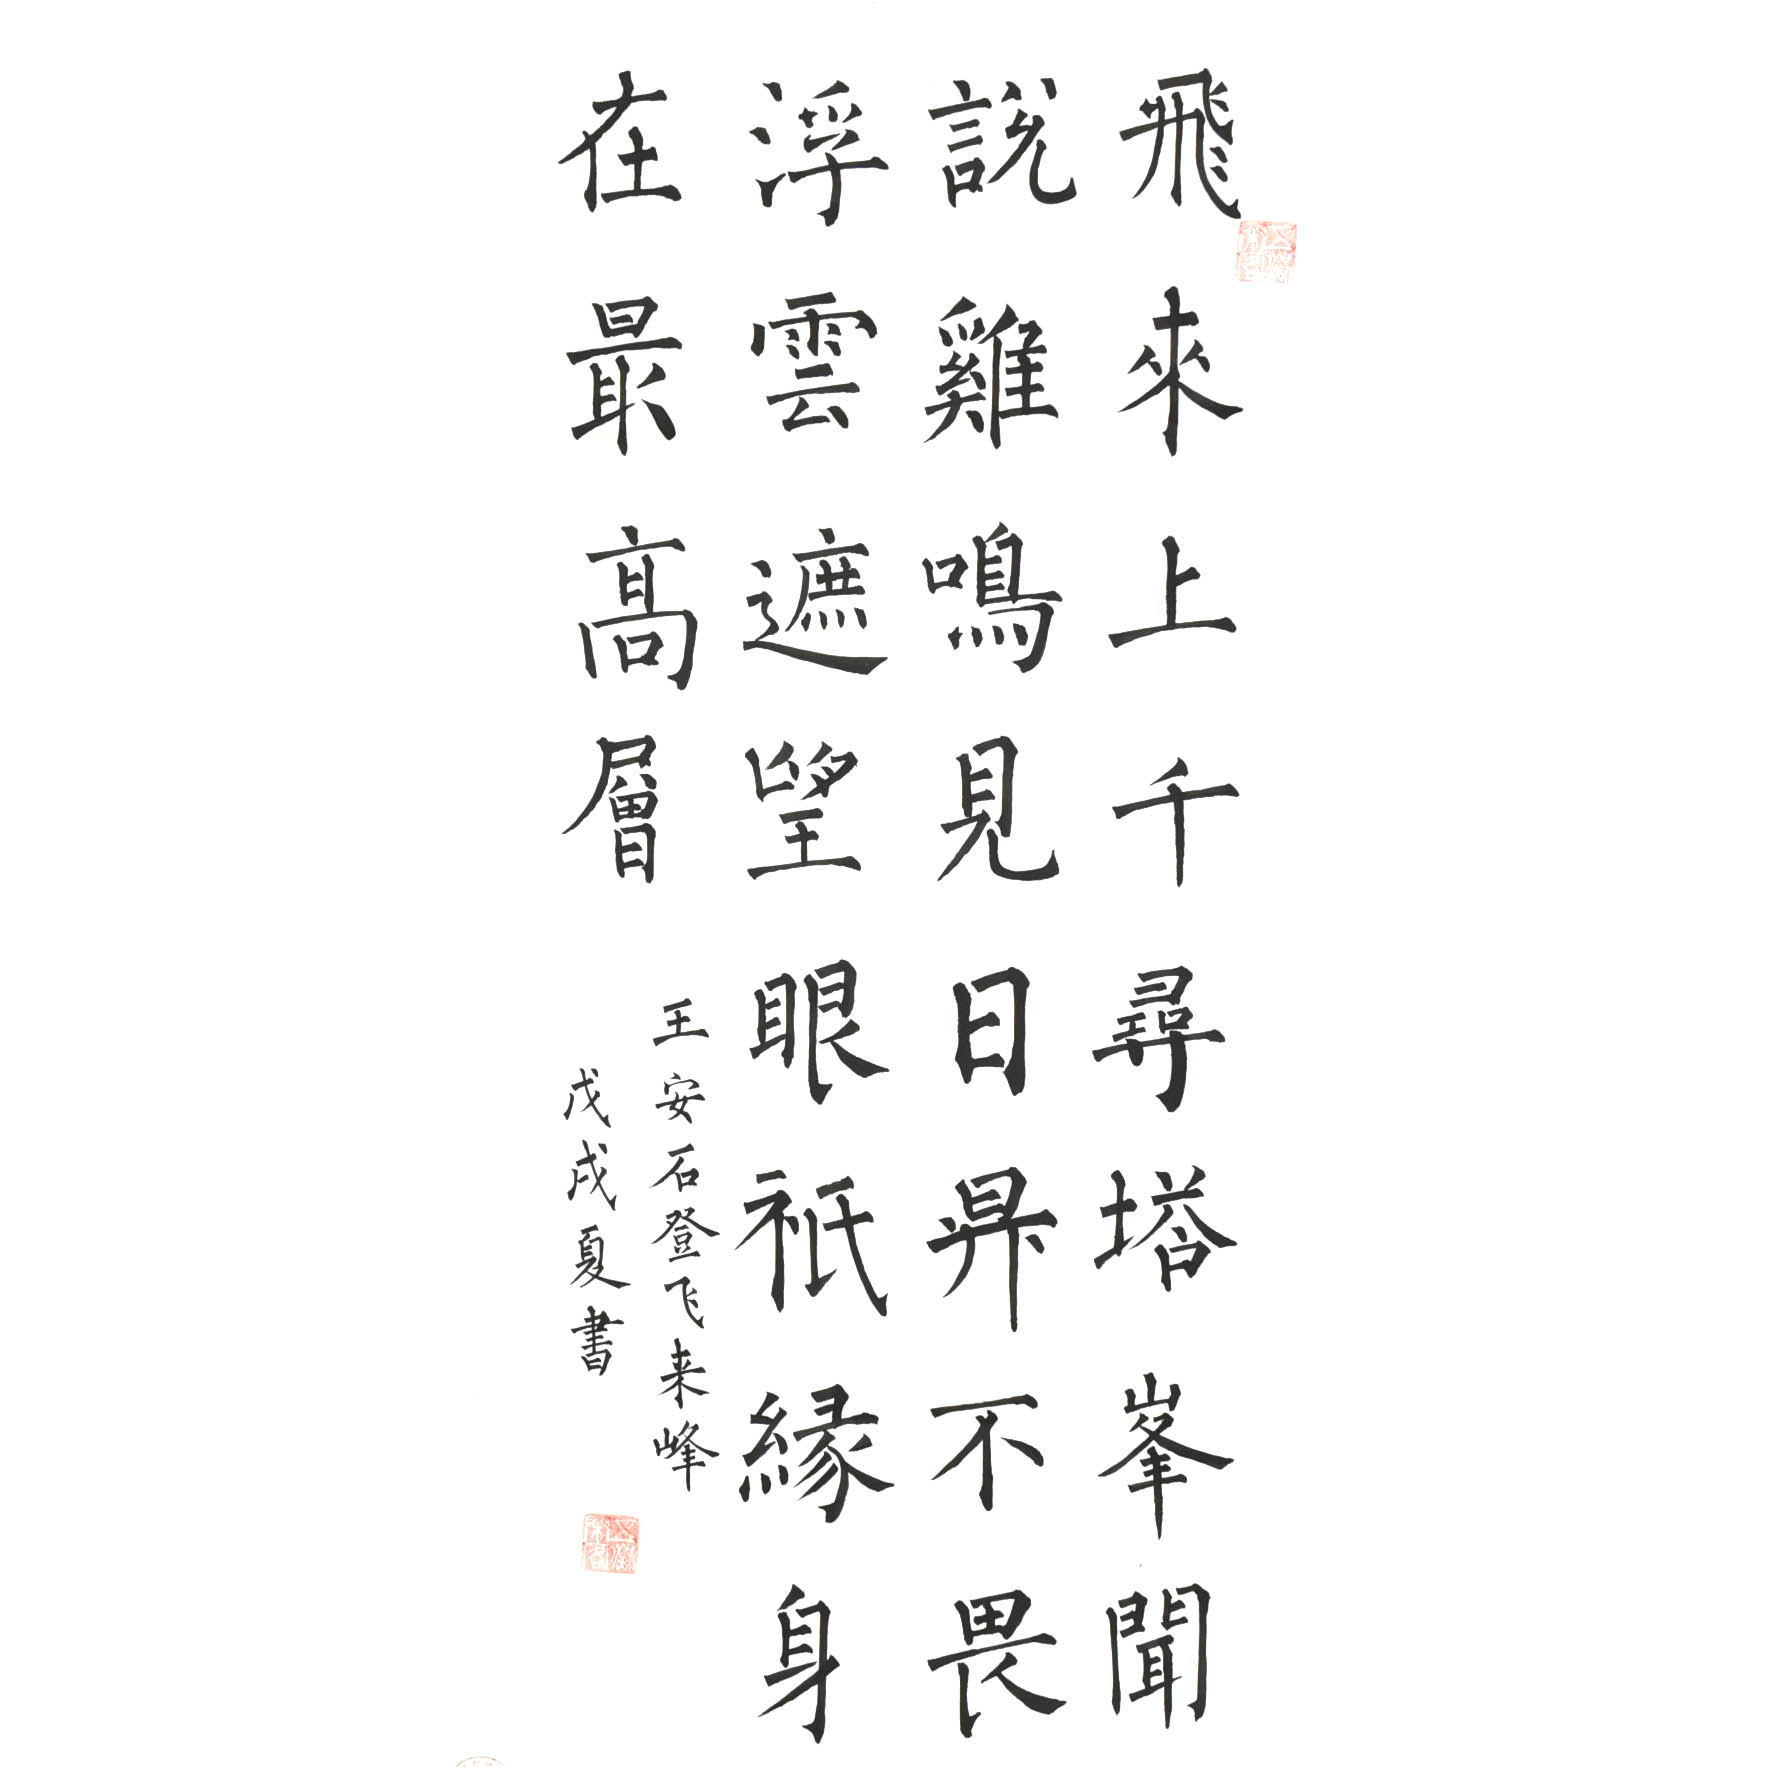 飛來上千尋塔峯聞
說雞鳴見日昇不畏
浮雲遮望眼祇緣身
在最高層
王安石登飞来峰
戊戌夏書